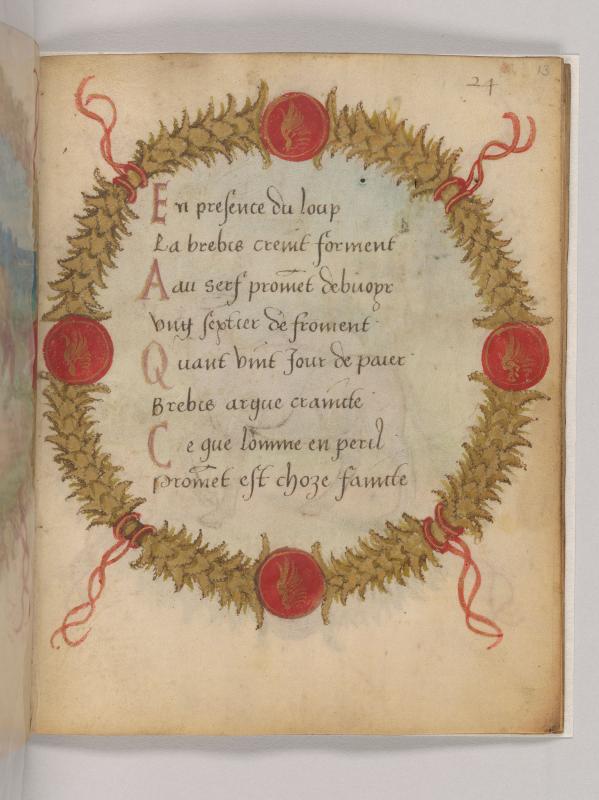 24
13
En presence du loup
La brebis creint forment
Aau serf promet debuoyr
vnng septier de froment
Quant vint Jour de paier
Brebis argue craincte
Ce que lomme en peril
promet est choze faincte